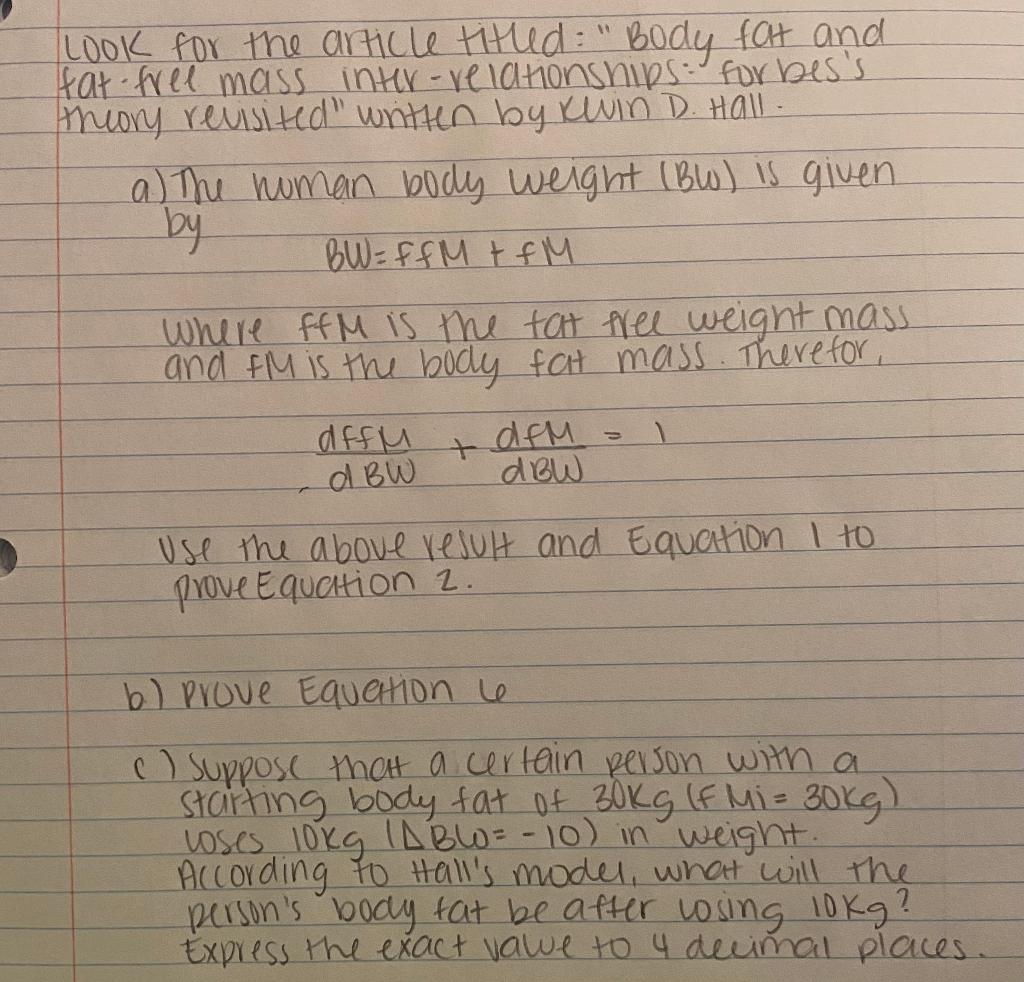 LOOK for the article titled: "Body fat and
fat-free mass inter-relationships: Forbes's
theory revisited" written by Kevin D. Hall.
a) The human body weight (BW) is given
by
BW = FFM + FM
Where FFM is the fat free weight mass
and FM is the body fat mass. Therefor,
dFFM/dBW + dFM/dBW = 1
Use the above result and Equation 1 to
prove Equation 2.
b) Prove Equation 6
c) Suppose that a certain person with a
starting body fat of 30kg (FMi = 30kg)
loses 10kg (ΔBW = -10) in weight.
According to Hall's model, what will the
person's body fat be after losing 10kg?
Express the exact value to 4 decimal places.